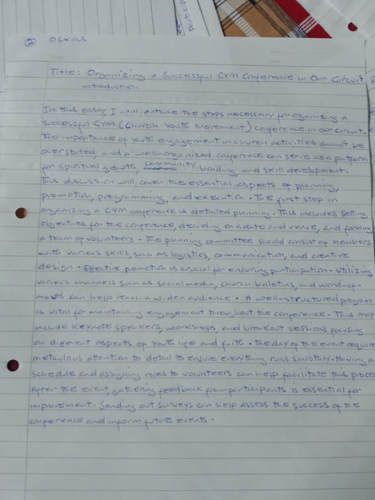 OSKILLS
Title: Organizing a Successful CYM Conference in Our Circuit
introduction.
In this essay, I will outline the steps necessary for organizing a
successful CYM (Church Youth Movement) conference in our circuit.
The importance of youth engagement in church activities cannot be
overstated, and a well-organized conference can serve as a platform
for spiritual growth, community bonding, and skill development.
This discussion will cover the essential aspects of planning,
promotion, programming, and execution. The first step in
organizing a CYM conference is detailed planning. This includes setting
objectives for the conference, deciding on a date and venue, and forming
a team of volunteers. The planning committee should consist of members
with various skills, such as logistics, communication, and creative
design. Effective promotion is crucial for ensuring participation. Utilizing
various channels such as social media, church bulletins, and
can help reach a wider audience. A well-structured program
is vital for maintaining engagement throughout the conference. This may
include keynote speakers, workshops, and breakout sessions focusing
on different aspects of youth life and faith. The day of the event require
meticulous attention to detail to ensure everything runs smoothly. Having a
schedule and assigning roles to volunteers can help facilitate this
After the event, gathering feedback from participants is essential for
improvement. Sending out surveys can help assess the success of the
conference and inform future events.